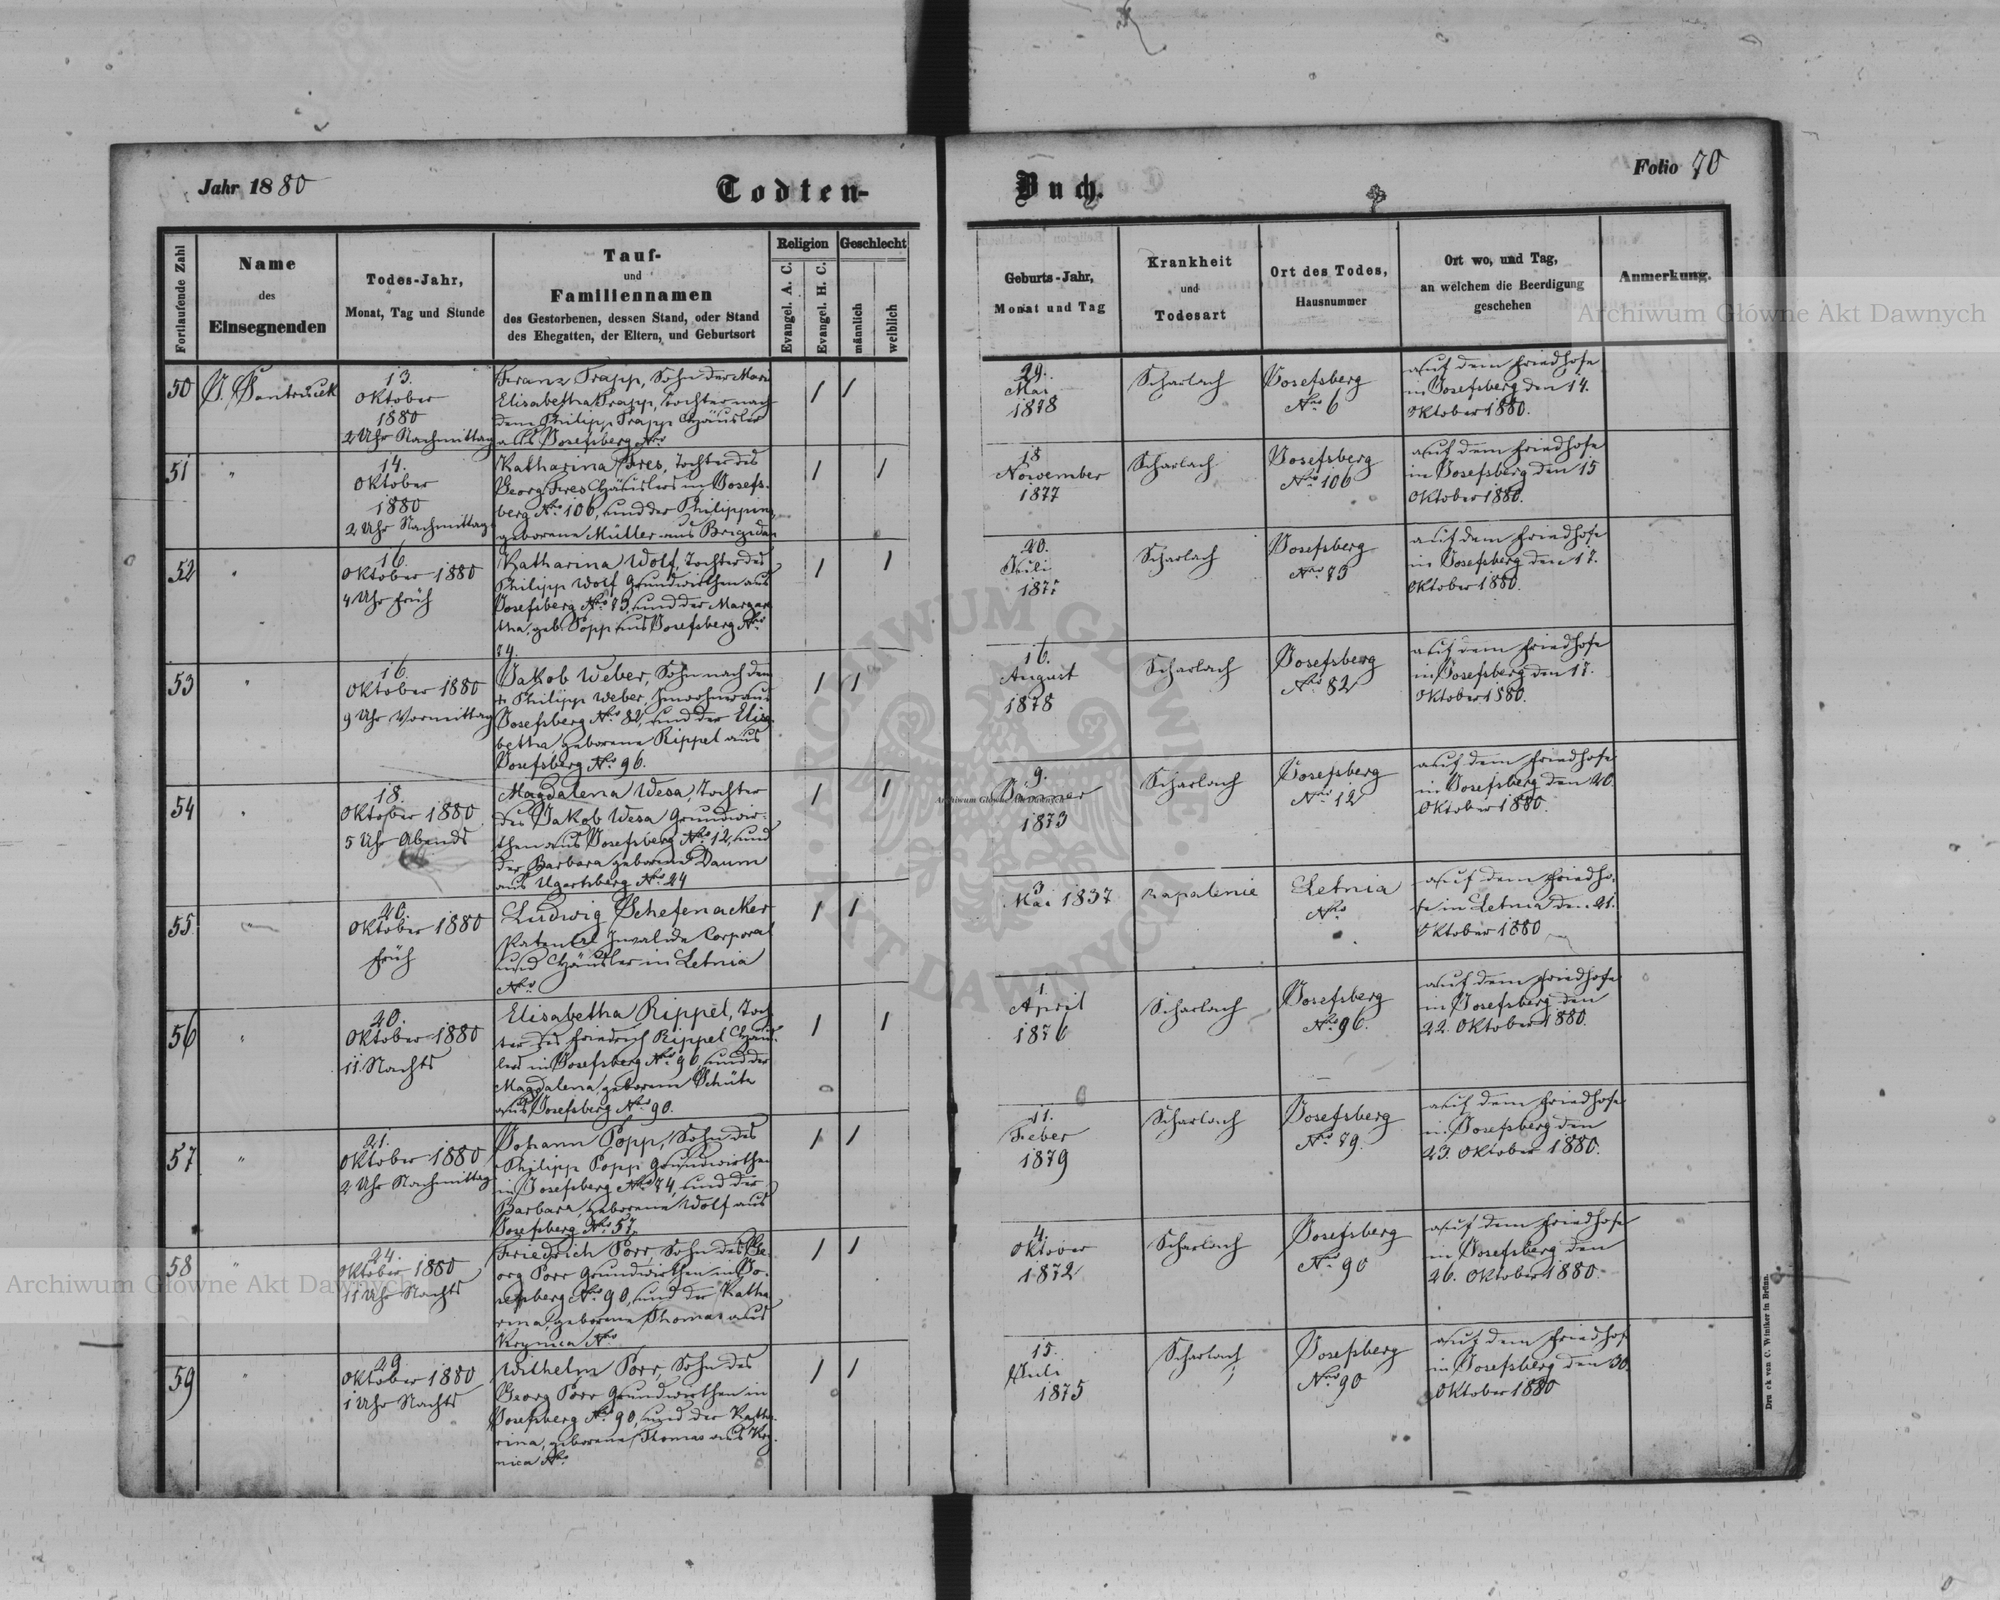 Jahr 1880
Todten-
Buch.
Folio 70
Fortlaufende Zahl
Name
des
Einsegnenden
Todes-Jahr,
Monat, Tag und Stunde
Tauf-
und
Familiennamen
des Gestorbenen, dessen Stand, oder Stand
des Ehegatten, der Eltern, und Geburtsort
Religion
Evangel. A. C.
Evangel. H. C.
Geschlecht
männlich
weiblich
Geburts-Jahr,
Monat und Tag
Krankheit
und
Todesart
Ort des Todes,
Hausnummer
Ort wo, und Tag,
an welchem die Beerdigung
geschehen
Anmerkung.
50
13.
Oktober
1880
2 Uhr Nachmittag
Franz Trapp, Sohn der
Elisabetha Trapp, Tochter nach
dem Philipp Trapp Häusler
aus Josefsberg Nro
/ /
29.
Mai
1878
Scharlach
Josefsberg
Nro 6
auf dem Friedhofe
in Josefsberg den 14.
Oktober 1880.
51
"
14.
Oktober
1880
2 Uhr Nachmittag
Katharina Fres, Tochter des
Georg Fres Häuslers in Josefs-
berg Nro 106, und der Philippina
geborene Müller aus Brigidau
/ /
18
November
1877
Scharlach
Josefsberg
Nro 106
auf dem Friedhofe
in Josefsberg den 15
Oktober 1880.
52
"
16.
Oktober 1880
4 Uhr Früh
Katharina Wolf, Tochter des
Philipp Wolf Grundwirthen aus
Josefsberg Nro 79, und der Marga
tha, geb. Popp aus Josefsberg Nro
74.
/ /
20.
Juli
Scharlach
Josefsberg
Nro 79
auf dem Friedhofe
in Josefsberg den 17.
Oktober 1880.
53
"
16.
Oktober 1880
9 Uhr Vormittag
Jakob Weber, Sohn nach dem
+ Philipp Weber, Inwohner aus
Josefsberg Nro 82, und der Elisa-
betha, geborene Rippel aus
Josefsberg Nro 96.
/ /
16.
August
1878
Scharlach
Josefsberg
Nro 82
auf dem Friedhofe
in Josefsberg den 17.
Oktober 1880.
54
"
18.
Oktober 1880
5 Uhr Abends
Magdalena Wesa, Tochter
des Jakob Wesa Grundwir-
then aus Josefsberg Nro 12, und
der Barbara geborene Daum
aus Ugartsberg Nro 24
/ /
9.
Januar
1873
Scharlach
Josefsberg
Nro 12
auf dem Friedhofe
in Josefsberg den 20.
Oktober 1880.
55
"
20.
Oktober 1880
Früh
Ludwig Schefenacker
Patental Invalide Corporal
und Häusler in Letnia
Nro
/ /
3
Mai 1837
Letnia
Nro
auf dem Friedho-
fe in Letnia den 21.
Oktober 1880
56
"
20.
Oktober 1880
11 Nachts
Elisabetha Rippel, Toch
ter des Friedrich Rippel Häus-
lers in Josefsberg Nro 96, und der
Magdalena, geborene Schütz
aus Josefsberg Nro 90.
/ /
1.
April
1876
Scharlach
Josefsberg
Nro 96.
auf dem Friedhofe
in Josefsberg den
22. Oktober 1880.
57
"
21.
Oktober 1880
2 Uhr Nachmittag
Johann Popp, Sohn des
Philipp Popp Grundwirthen
in Josefsberg Nro 74, und der
Barbara, geborene Wolf aus
Josefsberg Nro 57.
/ /
11.
Feber
1879
Scharlach
Josefsberg
Nro 79.
auf dem Friedhofe
in Josefsberg den
23. Oktober 1880.
58
"
24.
Oktober 1880
11 Uhr Nachts
Friedrich Porr, Sohn des Ge
org Porr Grundwirthen in Jo-
sefsberg Nro 90, und der Katha
rina, geborene Thomas aus
Krynica Nro
/ /
4.
Oktober
1872
Scharlach
Josefsberg
Nro 90
auf dem Friedhofe
in Josefsberg den
26. Oktober 1880.
59
"
29
Oktober 1880
1 Uhr Nachts
Wilhelm Porr, Sohn des
Georg Porr Grundwirthen in
Josefsberg Nro 90, und der Katha-
rina, geborene Thomas aus Kry-
nica Nro
/ /
15.
Juli
1875
Scharlach
Josefsberg
Nro 90
auf dem Friedhof
in Josefsberg den 30.
Oktober 1880
Archiwum Główne Akt Dawnych
Archiwum Główne Akt Dawnych
Archiwum Główne Akt Dawnych
ARCHIWUM GŁÓWNE · AKT DAWNYCH ·